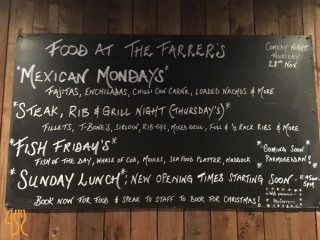 FOOD AT THE FARRER'S
COMEDY NIGHT
THURSDAY
28TH NOV
"MEXICAN MONDAYS"
FAJITAS, ENCHILADAS, CHILLI CON CARNE, LOADED NACHOS & MORE
*STEAK, RIB & GRILL NIGHT (THURSDAY'S)*
FILLETS, T-BONE'S, SIRLOIN, RIB-EYE, MIXED GRILL, FULL & ½ RACK RIBS & MORE
*FISH FRIDAY'S*
FISH OF THE DAY, WHALE OF COD, MOULES, SEA FOOD PLATTER, HADDOCK
*COMING SOON*
PARMOGEDDON
*SUNDAY LUNCH*; NEW OPENING TIMES STARTING SOON -
11.45am-
5pm
BOOK NOW FOR FOOD & SPEAK TO STAFF TO BOOK FOR CHRISTMAS!